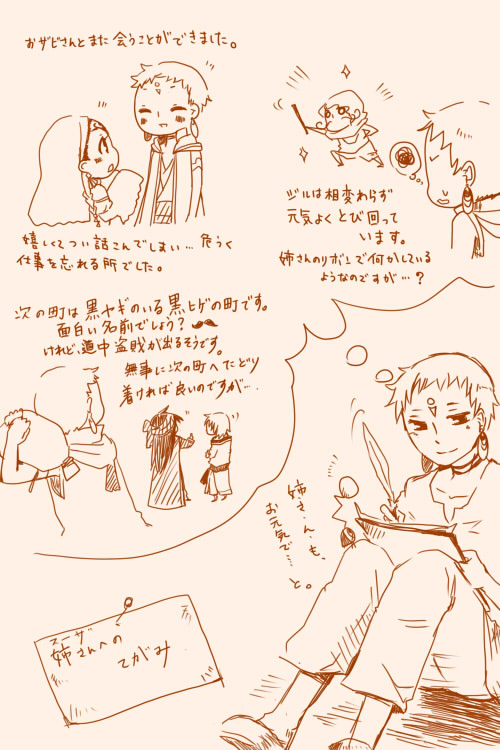 おザビさんとまた会うことができました。
嬉しくてつい話さんでしまい…危うく
仕事を忘れる所でした。
ジルは相変わらず
元気よくとび回って
います。
姉さんのリボンで何かしている
ようなのですが…？
次の町は黒ヤギのいる黒ヒゲの町です。
面白い名前でしょう？
けれど、道中盗賊が出るそうです。
無事に次の町へたどり
着ければ良いのですが…
姉さんも、
お元気で…
と。
スーザ
姉さんへの
てがみ